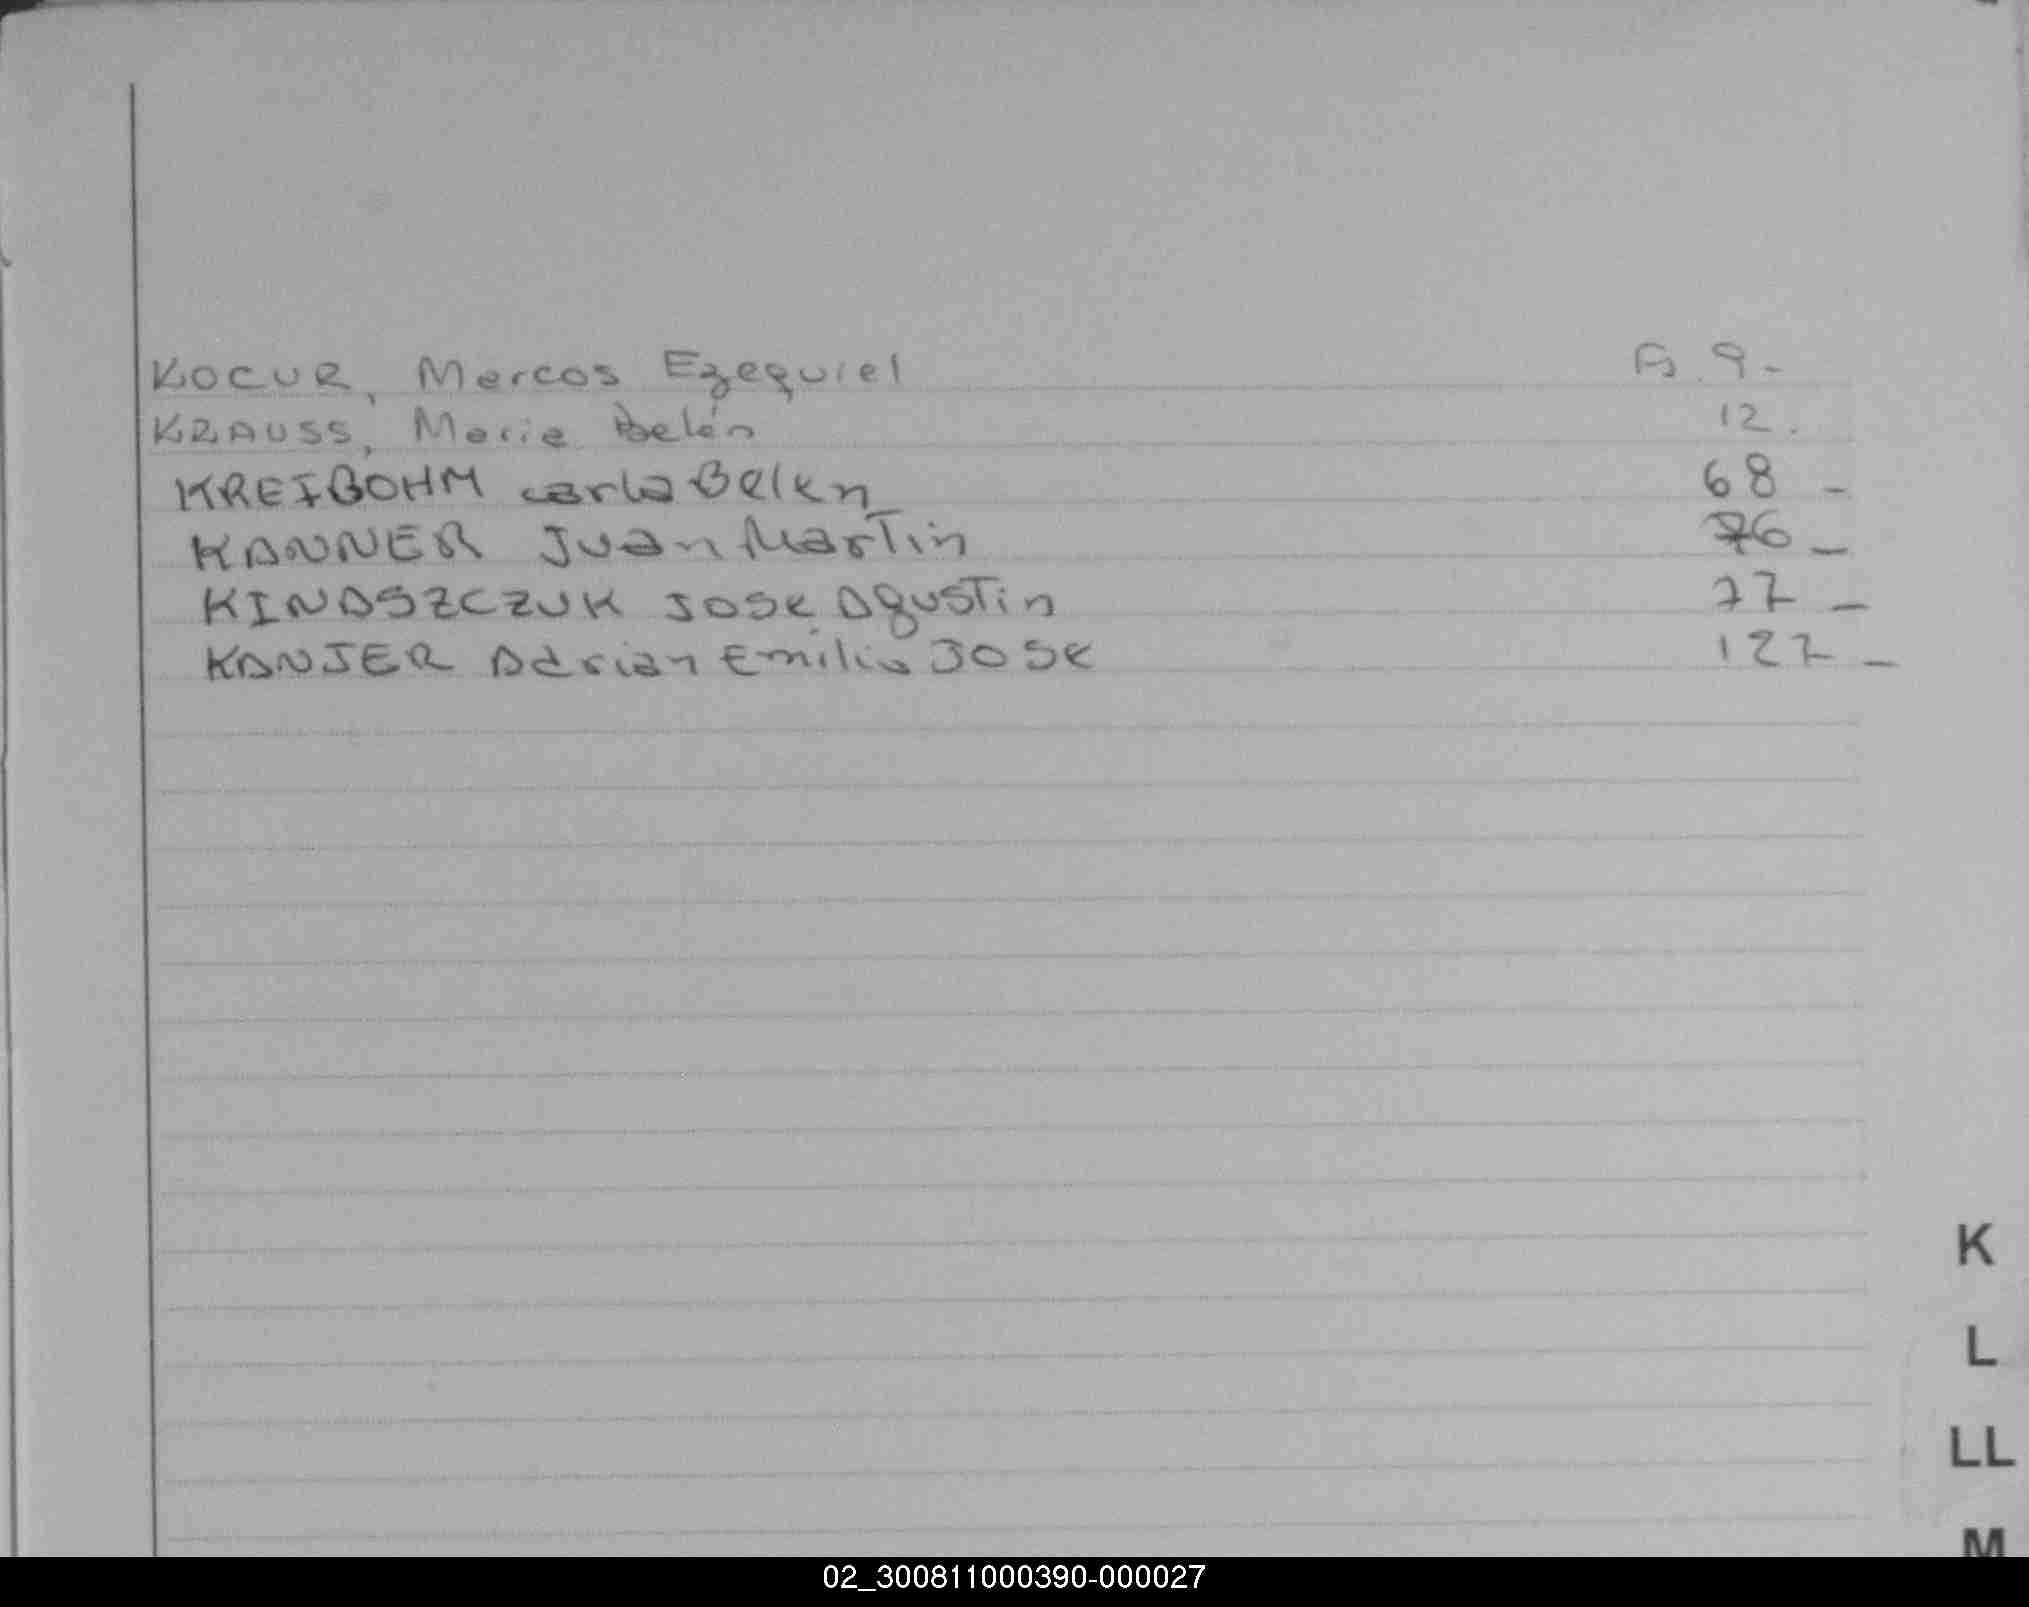 KOCUR, Marcos Ezequiel Fs. 9.-
KRAUSS, Maria Belén 12.
KREIBOHM carla Belen 68 _
KANNER Juan Martin 76 _
KINASZCZUK Jose Agustin 77 _
KANJER Adrian Emilio Jose 127 _
K
L
LL
M
02_300811000390-000027